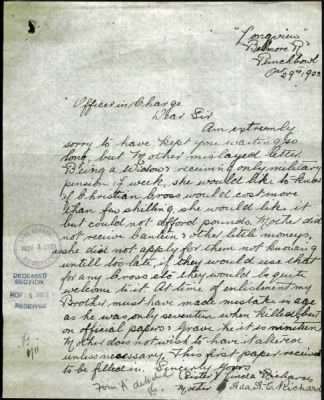 "Longview"
Belmore Rd
Punchbowl
Oct 29th, 1903
Officer in Charge
Dear Sir
Am extremely
sorry to have kept you waiting so
long, but Mother mislayed letter.
Being a Widow receiving only military
pension £ week, she would like to know
if Christian Cross would cost more
than few shilling, she would like it
but could not afford pounds. Mother did
not receive Darling other little moneys,
as she did not apply for them not knowing
untill too late, if they would use that
for any Cross etc they would be quite
welcome to it. At time of enlistment my
Brother must have made mistake in age
as he was only seventeen when killed, but
on official papers & Grave he it is nineteen
Mother does not wish to have it altered
unless necessary. This first paper received
to be filled in. Sincerely Yours
Sister Linda Richards
Mother Ada A. C. Richards
DECEASED
SECTION
NOV
RECEIVED
Form A detached